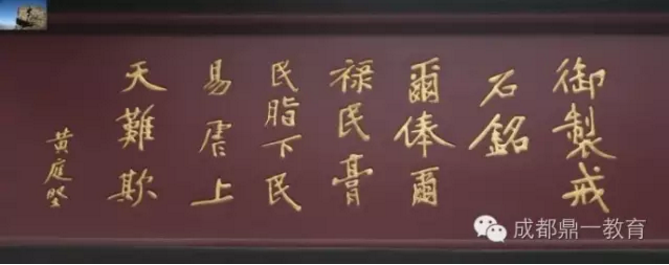 御製戒
石銘
爾俸爾
禄民膏
民脂下民
易虐上
天難欺
黄庭堅
成都鼎一教育